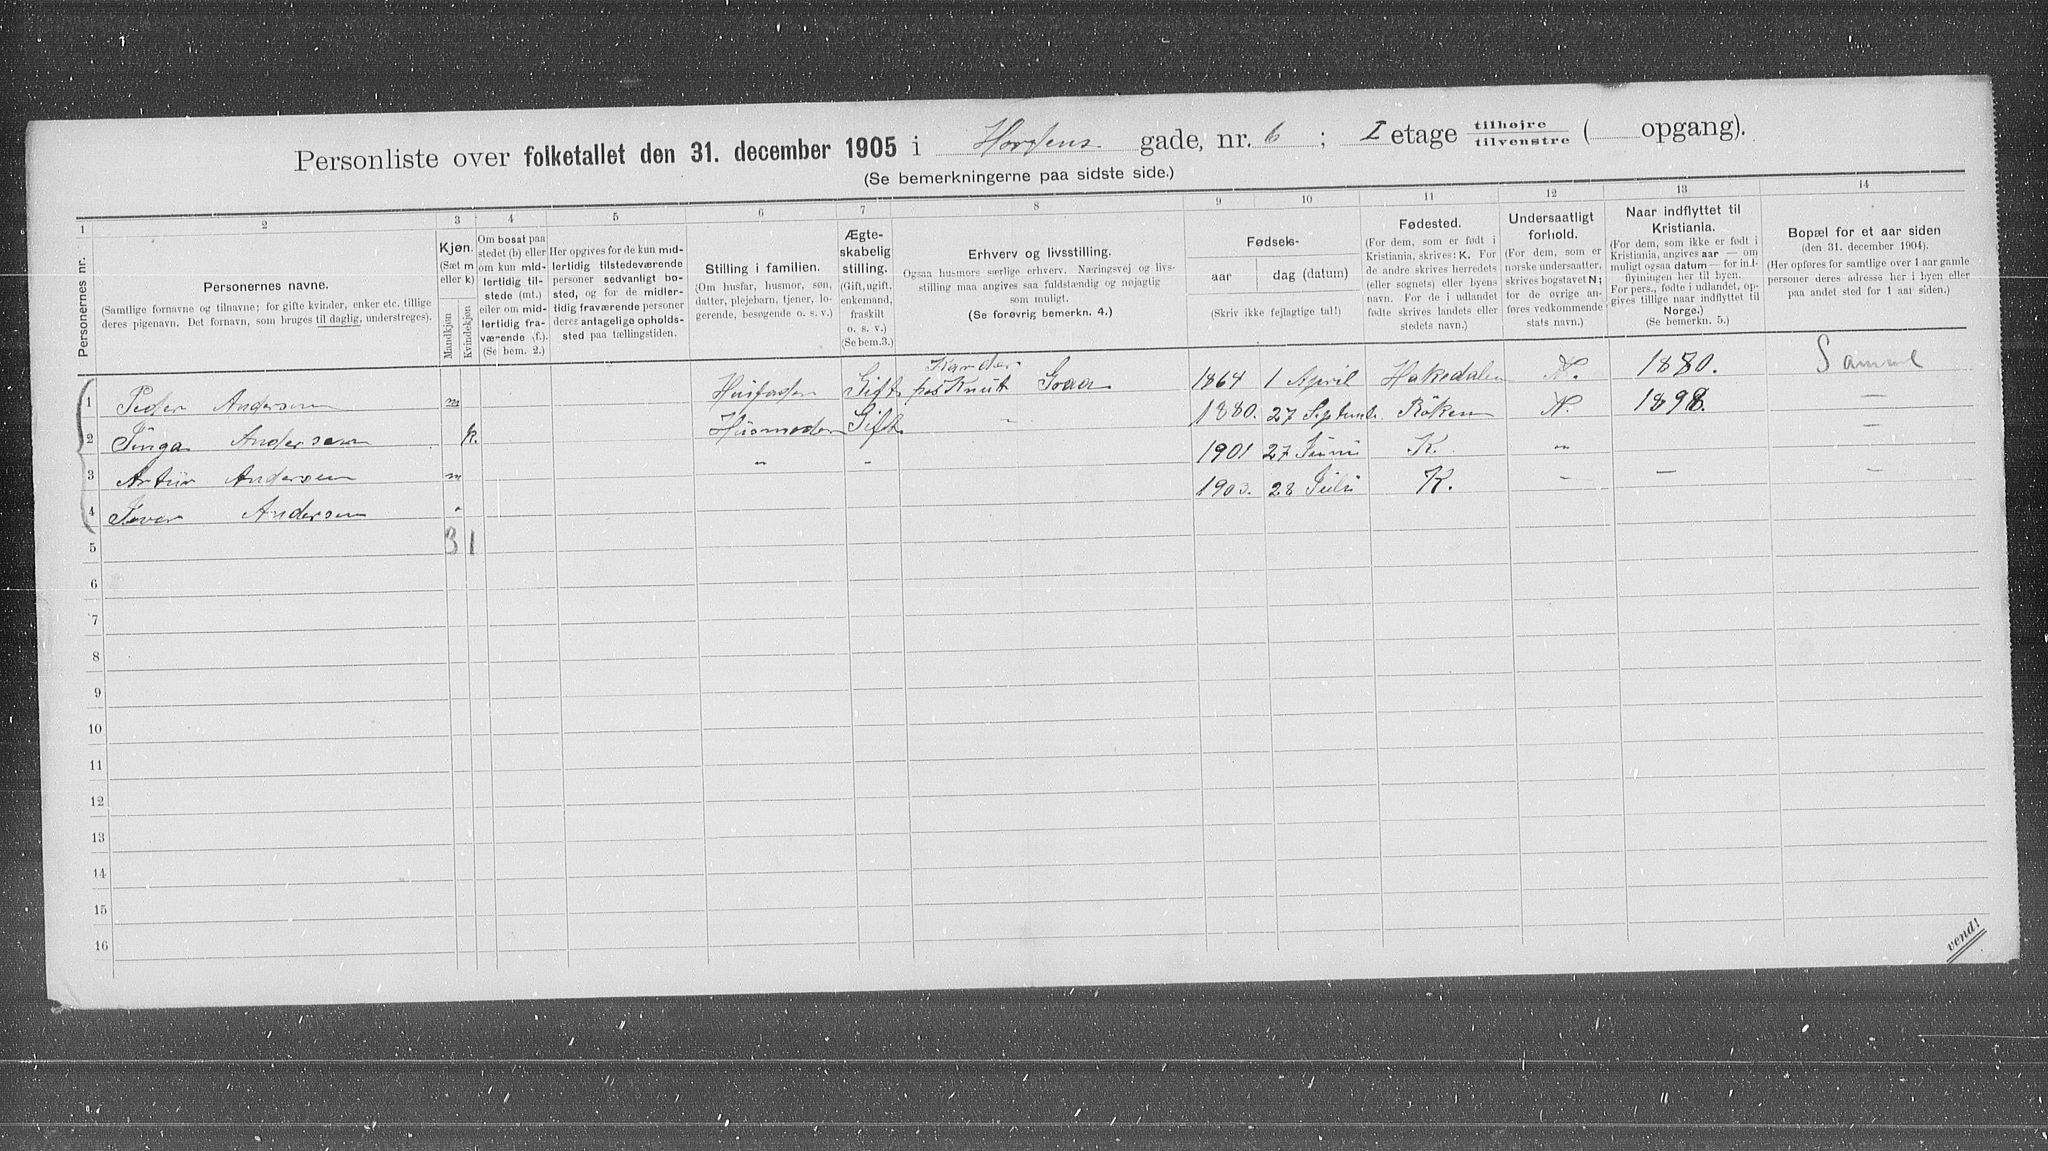 Personliste over folketallet den 31. december 1905 i Horstens gade, nr. 6 ; I etage tilhøjre tilvenstre ( opgang).
(Se bemerkningerne paa sidste side.)
1 2 3 4 5 6 7 8 9 10 11 12 13 14
Personernes nr.
Personernes navne.
(Samtlige fornavne og tilnavne; for gifte kvinder, enker etc. tillige deres pigenavn. Det fornavn, som bruges til daglig, understreges).
Kjøn.
(Sæt m eller k)
Mandkjøn
Kvindekjøn
Om bosat paa stedet (b) eller om kun midlertidig tilstede (mt.) eller om midlertidig fraværende (f.). (Se bem. 2.)
Her opgives for de kun midlertidig tilstedeværende personer sedvanligt bosted, og for de midlertidig fraværende personer deres antagelige opholdssted paa tællingstiden.
Stilling i familien.
(Om husfar, husmor, søn, datter, plejebarn, tjener, logerende, besøgende o. s. v.)
Ægteskabelig stilling.
(Gift, ugift, enkemand, fraskilt o. s. v.) (Se bem.3.)
Erhverv og livsstilling.
Ogsaa husmors særlige erhverv. Næringsvej og livsstilling maa angives saa fuldstændig og nøjagtig som muligt.
(Se forøvrig bemerkn. 4.)
Fødsels-
aar dag (datum)
(Skriv ikke fejlagtige tal!)
Fødested.
(For dem, som er født i Kristiania, skrives: K. For de andre skrives herredets (eller sognets) eller byens navn. For de i udlandet fødte skrives landets eller stedets navn.)
Undersaatligt forhold.
(For dem, som er norske undersaatter, skrives bogstavet N; for de øvrige anføres vedkommende stats navn.)
Naar indflyttet til Kristiania.
(For dem, som ikke er født i Kristiania, angives aar — om muligt ogsaa datum — for indflyningen her til byen. For pers., fødte i udlandet, opgives tillige naar indflyttet til Norge.)
(Se bemerkn. 5.)
Bopæl for et aar siden
(den 31. december 1904).
(Her opføres for samtlige over 1 aar gamle personer deres adresse her i byen eller paa andet sted for 1 aar siden.)
1 Peder Andersen m Husfader Gift Karder hos Knut Graa 1864 1 April Hakedalen N. 1880. Samme
2 Inga Andersen k. Husmoder Gift " 1880. 27 Septemb. Röken N. 1898. —
3 Artur Andersen m " " 1901 27 Juni K. " —
4 Ivar Andersen " 1903. 28 Juli K. — — —
5 3 1
6
7
8
9
10
11
12
13
14
15
16
vend!